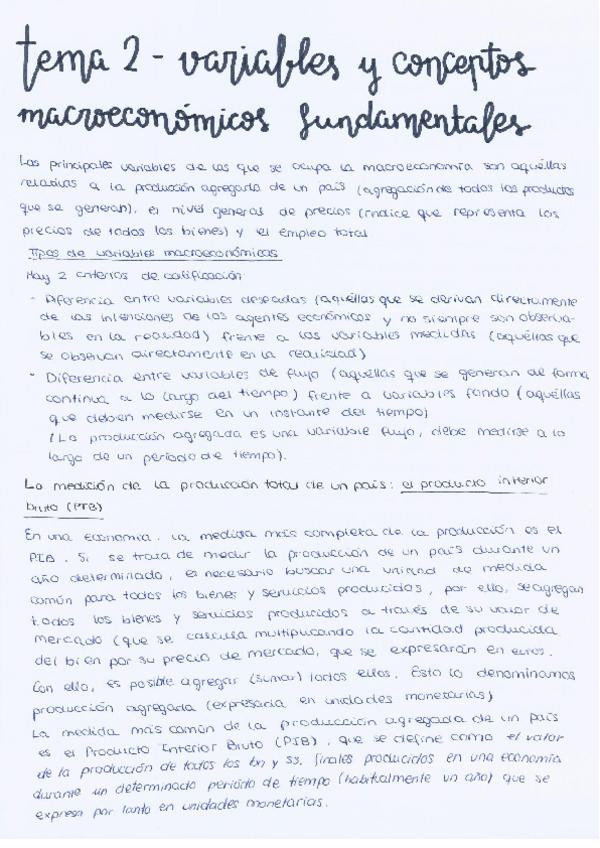 tema 2 - variables y conceptos
macroeconómicos fundamentales
Las principales variables de las que se ocupa la macroeconomía son aquéllas
relativas a la producción agregada de un país (agregación de todos los productos
que se generan), el nivel general de precios (índice que representa los
precios de todos los bienes) y el empleo total
Tipos de variables macroeconómicas
Hay 2 criterios de calificación:
- Diferencia entre variables deseadas (aquéllas que se derivan directamente
de las intenciones de los agentes económicos y no siempre son observa-
bles en la realidad) frente a las variables medidas (aquéllas que
se observan directamente en la realidad)
- Diferencia entre variables de flujo (aquéllas que se generan de forma
continua a lo largo del tiempo) frente a variables fondo (aquéllas
que deben medirse en un instante del tiempo)
(La producción agregada es una variable flujo, debe medirse a lo
largo de un período de tiempo).
La medición de la producción total de un país: el producto interior
bruto (PIB)
En una economía, la medida más completa de la producción es el
PIB. Si se trata de medir la producción de un país durante un
año determinado, es necesario buscar una unidad de medida
común para todos los bienes y servicios producidos, por ello, se agregan
todos los bienes y servicios producidos a través de su valor de
mercado (que se calcula multiplicando la cantidad producida
del bien por su precio de mercado, que se expresarán en euros.
Con ello, es posible agregar (sumar) todos ellos. Esto lo denominamos
producción agregada (expresada en unidades monetarias)
La medida más común de la producción agregada de un país
es el Producto Interior Bruto (PIB), que se define como el valor
de la producción de todos los bn y ss. finales producidos en una economía
durante un determinado período de tiempo (habitualmente un año) que se
expresa por tanto en unidades monetarias.